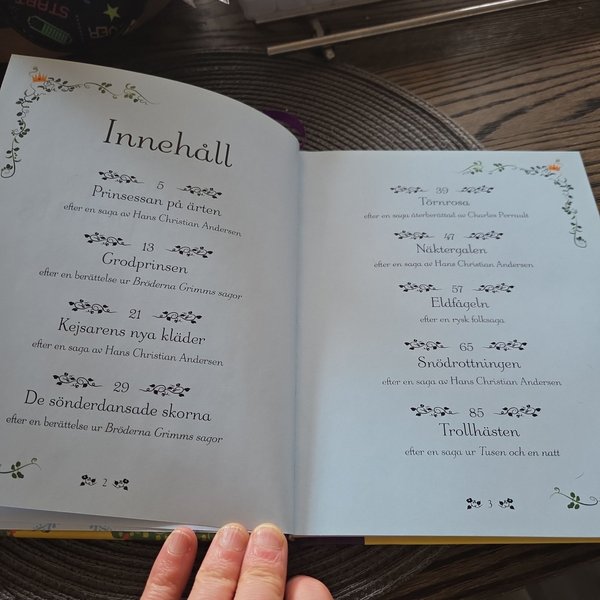 START
Innehåll
5
Prinsessan på ärten
efter en saga av Hans Christian Andersen
13
Grodprinsen
efter en berättelse ur Bröderna Grimms sagor
21
Kejsarens nya kläder
efter en saga av Hans Christian Andersen
29
De sönderdansade skorna
efter en berättelse ur Bröderna Grimms sagor
2
39
Törnrosa
efter en saga återberättad av Charles Perrault
47
Näktergalen
efter en saga av Hans Christian Andersen
57
Eldfågeln
efter en rysk folksaga
65
Snödrottningen
efter en saga av Hans Christian Andersen
85
Trollhästen
efter en saga ur Tusen och en natt
3